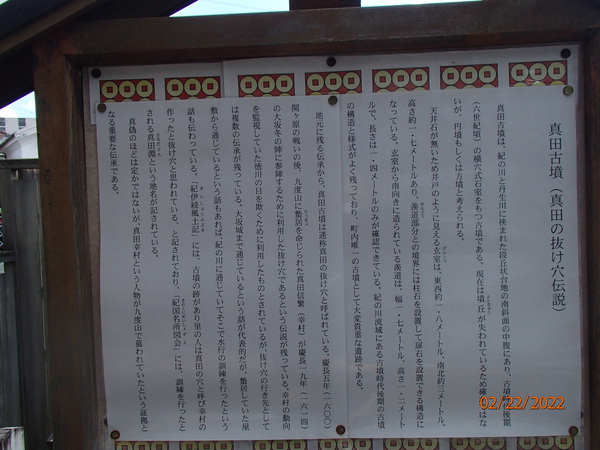 真田古墳（真田の抜け穴伝説）
真田古墳は、紀の川と丹生川に挟まれた段丘状台地の南斜面の中腹にあり、古墳時代後期
（六世紀頃）の横穴式石室をもつ古墳である。現在は墳丘が失われているため確定ではな
いが、円墳もしくは方墳と考えられる。
天井石が無いため井戸のように見える玄室は、東西約一・八メートル、南北約三メートル、
高さ約一・七メートルあり、羨道部分との境界には柱石を設置して扉石を設置できる構造に
なっている。玄室から南向きに造られている羨道は、幅一・七メートル、高さ一・二メート
ルで、長さは一・四メートルのみが確認できている。紀の川流域にある古墳時代後期の古墳
の構造と様式がよく残っており、町内唯一の古墳として大変貴重な遺跡である。
地元に残る伝承から、真田古墳は通称真田の抜け穴と呼ばれている。慶長五年（一六〇〇）
関ヶ原の戦いの後、九度山に蟄居を命じられた真田信繁（幸村）が慶長一九年（一六一四）
の大坂冬の陣に参陣するために利用した抜け穴であるという伝説が残っている。幸村の動向
を監視していた徳川の目を欺くために利用したものとされているが、抜け穴の行き先として
は複数の伝承が残っている。大坂城まで通じているという話が代表的だが、蟄居していた屋
敷から通じているという話もあれば、紀の川に通じていてそこで水行の訓練を行ったという
話も伝わっている。「紀伊続風土記」には、古墳の跡があり里の人は真田の穴と呼び幸村の
作ったと抜け穴と思われている。と記されており、「紀国名所図会」には、訓練を行ったと
される真田淵という地名が記されている。
真偽のほどは定かではないが、真田幸村という人物が九度山で慕われていたという証拠と
なる重要な伝承である。
02/22/2022